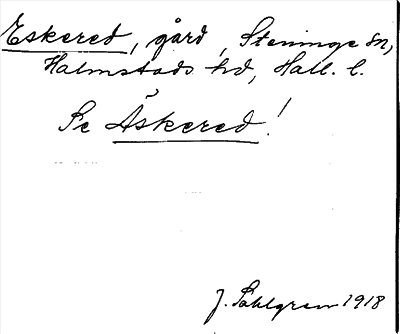 Eskered, gård, Steninge sn,
Halmstads hd, Hall. l.
Se Äskered!
J. Sahlgren 1918